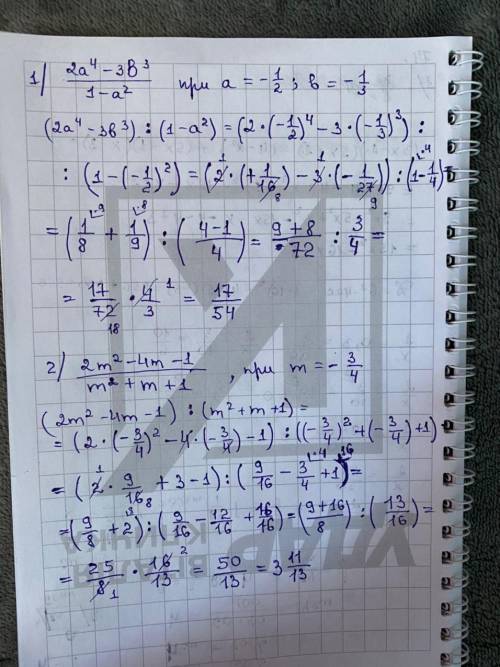 1/ (2a⁴ - 3в³)/(1 - a²) при a = -1/2; в = -1/3
(2a⁴ - 3в³) : (1 - a²) = (2 · (-1/2)⁴ - 3 · (-1/3)³) :
: (1 - (-1/2)²) = (2 · (+1/16) - 3 · (-1/27)) : (1 - 1/4) =
= (1/8 + 1/9) : ((4-1)/4) = (9+8)/72 : 3/4 =
= 17/72 · 4/3 = 17/54
2/ (2m² - 4m - 1)/(m² + m + 1), при m = -3/4
(2m² - 4m - 1) : (m² + m + 1) =
= (2 · (-3/4)² - 4 · (-3/4) - 1) : ((-3/4)² + (-3/4) + 1) =
= (2 · 9/16 + 3 - 1) : (9/16 - 3/4 + 1) =
= (9/8 + 2) : (9/16 - 12/16 + 16/16) = ((9+16)/8) : (13/16) =
= 25/8 · 16/13 = 50/13 = 3 11/13